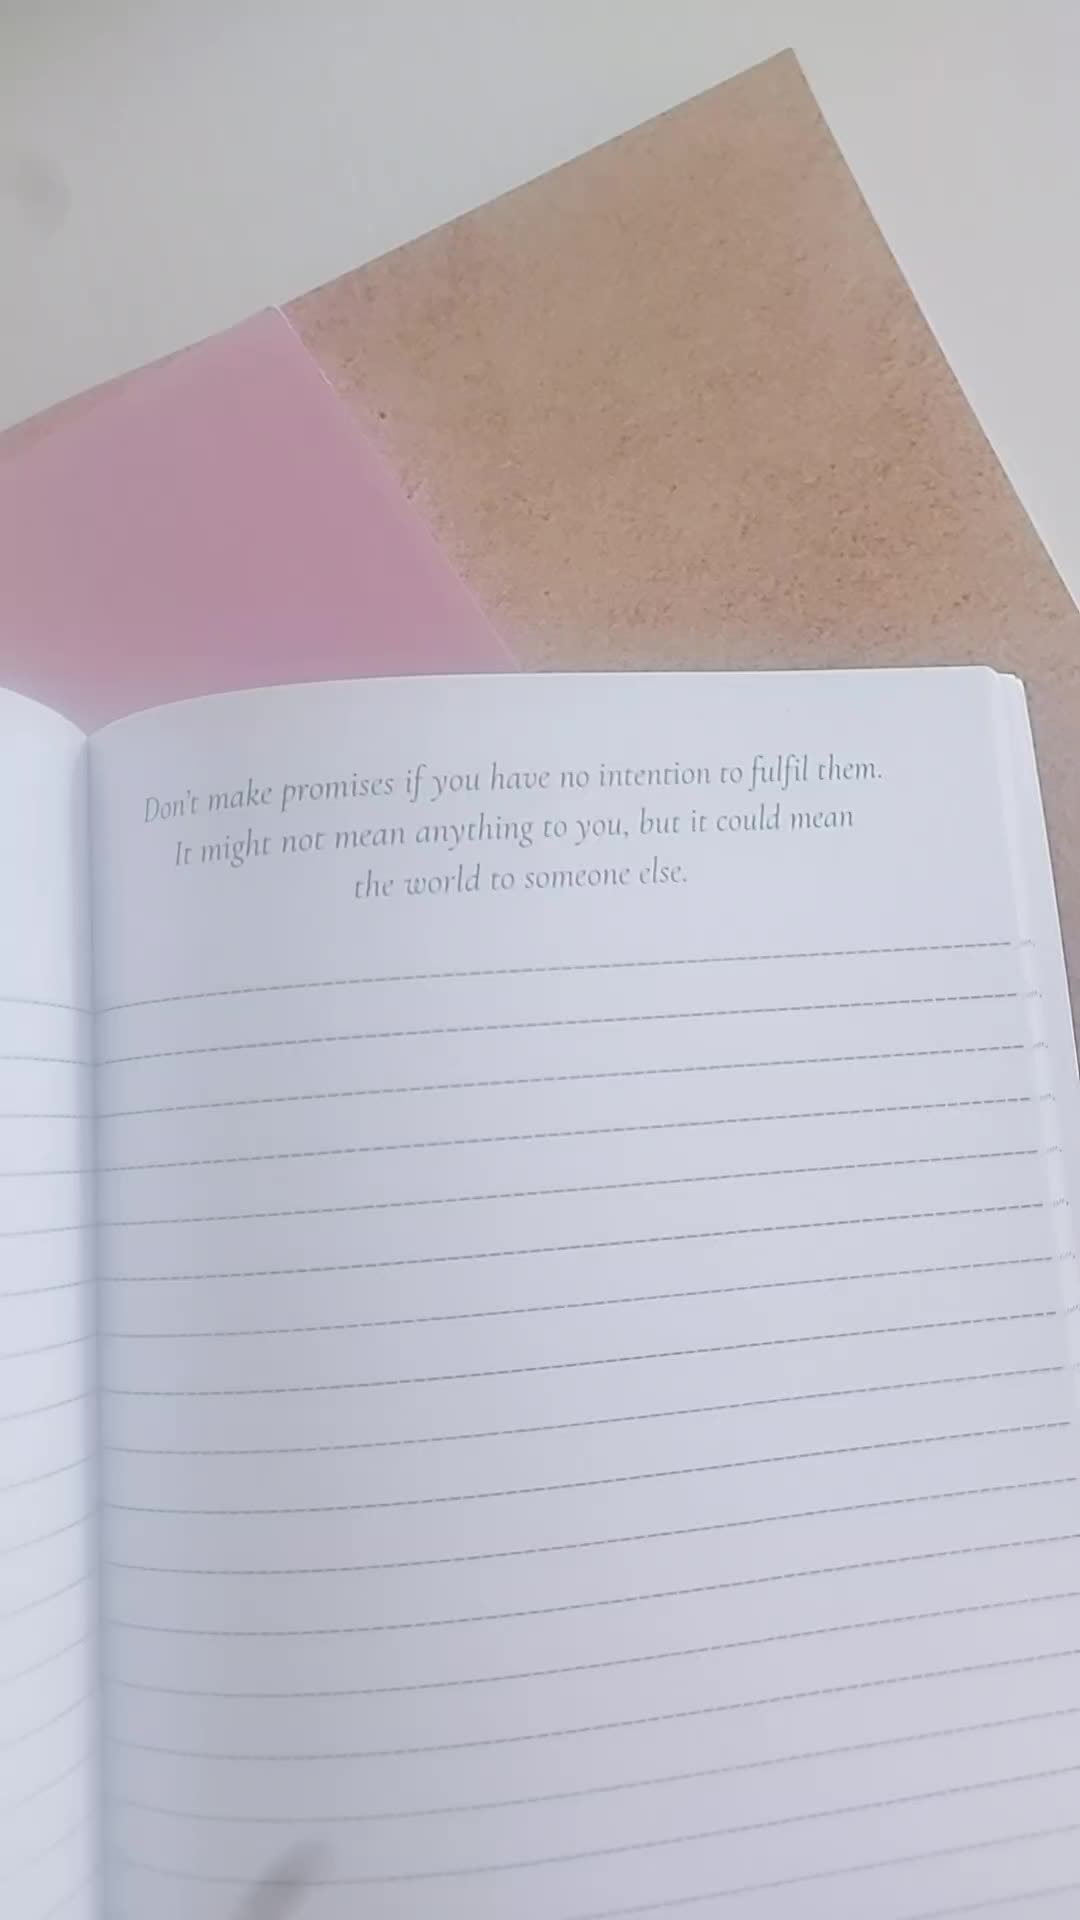 Don't make promises if you have no intention to fulfil them.
It might not mean anything to you, but it could mean
the world to someone else.